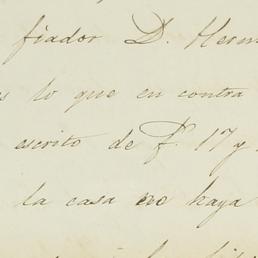 fiador D. Herm
s lo que en contra
escrito de f. 17 y
la casa no haya